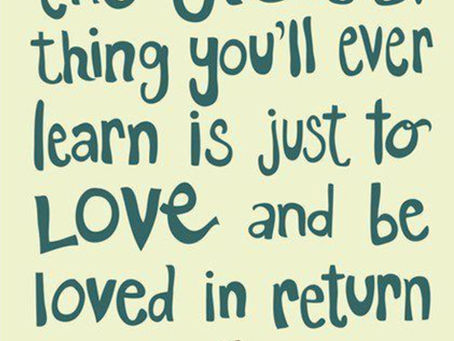 the
thing you'll ever
learn is just to
LOVE and be
loved in return